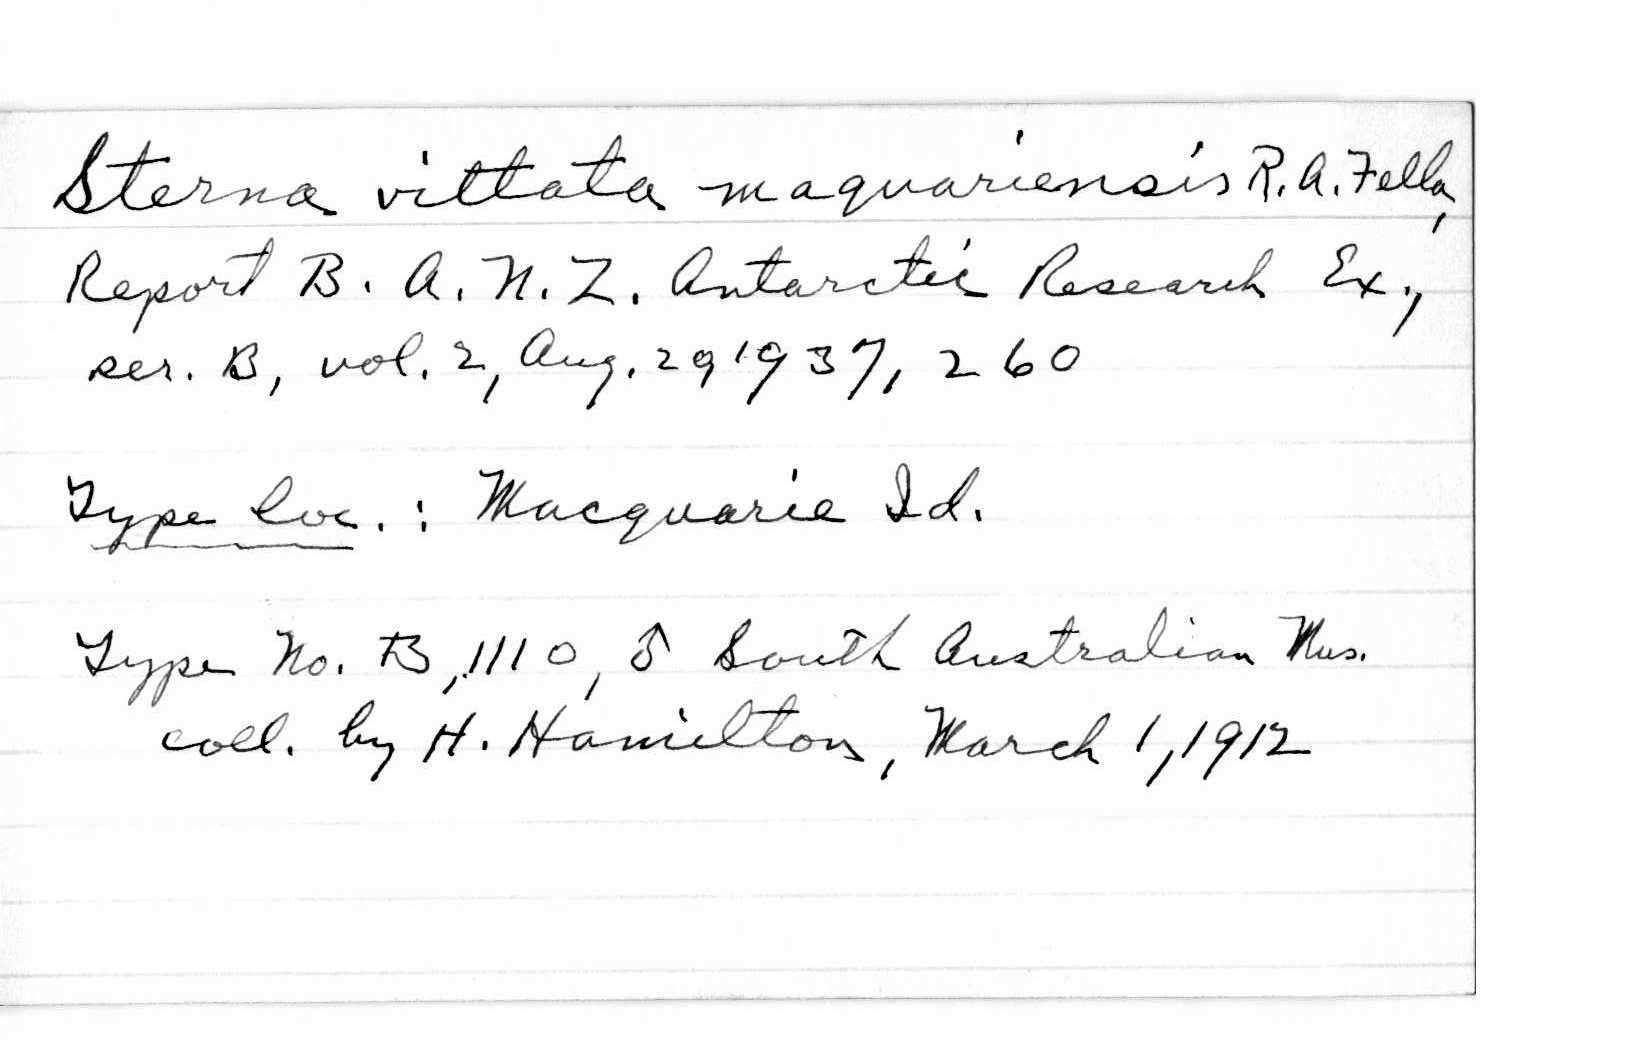 Sterna vittata maquariensis R.A. Falla,
Report B.A.N.Z. Antarctic Research Ex.,
ser. B, vol. 2, Aug. 29 1937, 260
Type loc.: Macquarie Id.
Type No. B,1110, ♂ South Australian Mus.
coll. by H. Hamilton, March 1, 1912